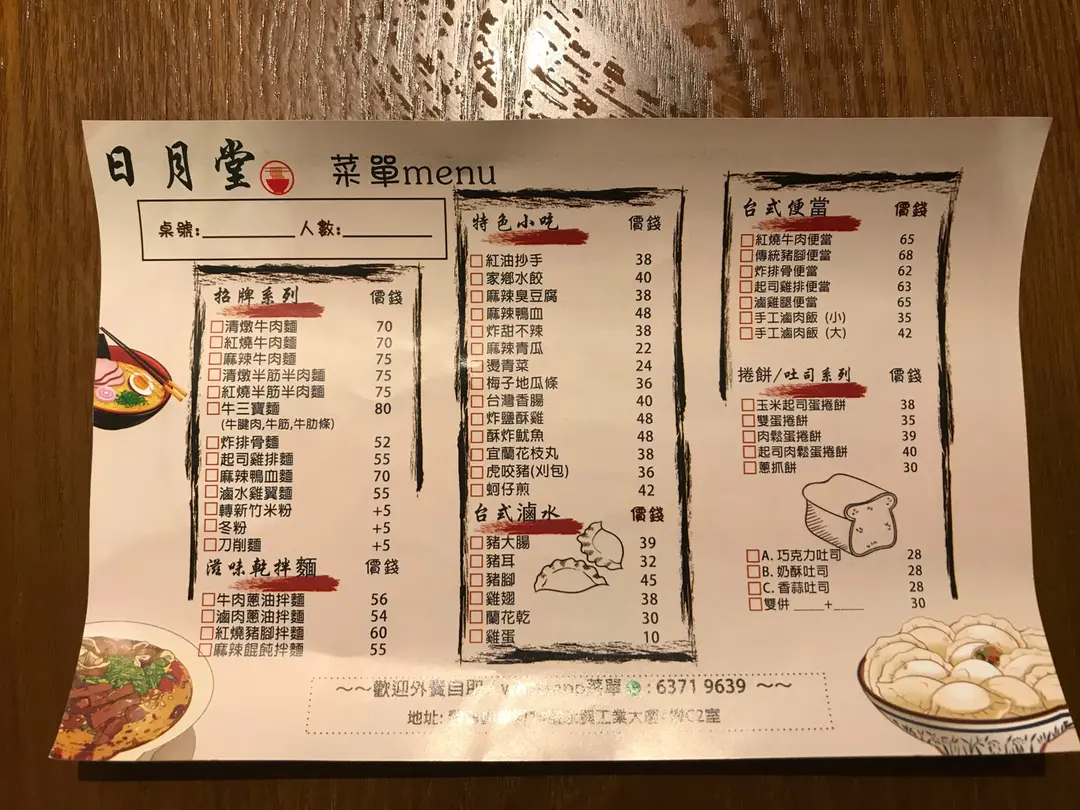 日月堂
菜單menu
桌號:________ 人數:________
招牌系列 價錢
清燉牛肉麵 70
紅燒牛肉麵 70
麻辣牛肉麵 75
清燉半筋半肉麵 75
紅燒半筋半肉麵 75
牛三寶麵 80
(牛腱肉,牛筋,牛肋條)
炸排骨麵 52
起司雞排麵 55
麻辣鴨血麵 70
滷水雞翼麵 55
轉新竹米粉 +5
冬粉 +5
刀削麵 +5
滋味乾拌麵 價錢
牛肉蔥油拌麵 56
滷肉蔥油拌麵 54
紅燒豬腳拌麵 60
麻辣餛飩拌麵 55
特色小吃 價錢
紅油抄手 38
家鄉水餃 40
麻辣臭豆腐 38
麻辣鴨血 48
炸甜不辣 38
麻辣青瓜 22
燙青菜 24
梅子地瓜條 36
台灣香腸 40
炸鹽酥雞 48
酥炸魷魚 48
宜蘭花枝丸 38
虎咬豬(刈包) 36
蚵仔煎 42
台式滷水 價錢
豬大腸 39
豬耳 32
豬腳 45
雞翅 38
蘭花乾 30
雞蛋 10
台式便當 價錢
紅燒牛肉便當 65
傳統豬腳便當 68
炸排骨便當 62
起司雞排便當 63
滷雞腿便當 65
手工滷肉飯 (小) 35
手工滷肉飯 (大) 42
捲餅/吐司系列 價錢
玉米起司蛋捲餅 38
雙蛋捲餅 35
肉鬆蛋捲餅 39
起司肉鬆蛋捲餅 40
蔥抓餅 30
A. 巧克力吐司 28
B. 奶酥吐司 28
C. 香蒜吐司 28
雙併 ____+____ 30
~~歡迎外賣自取 菜單 : 6371 9639 ~~
地址: 工業大廈 C2室